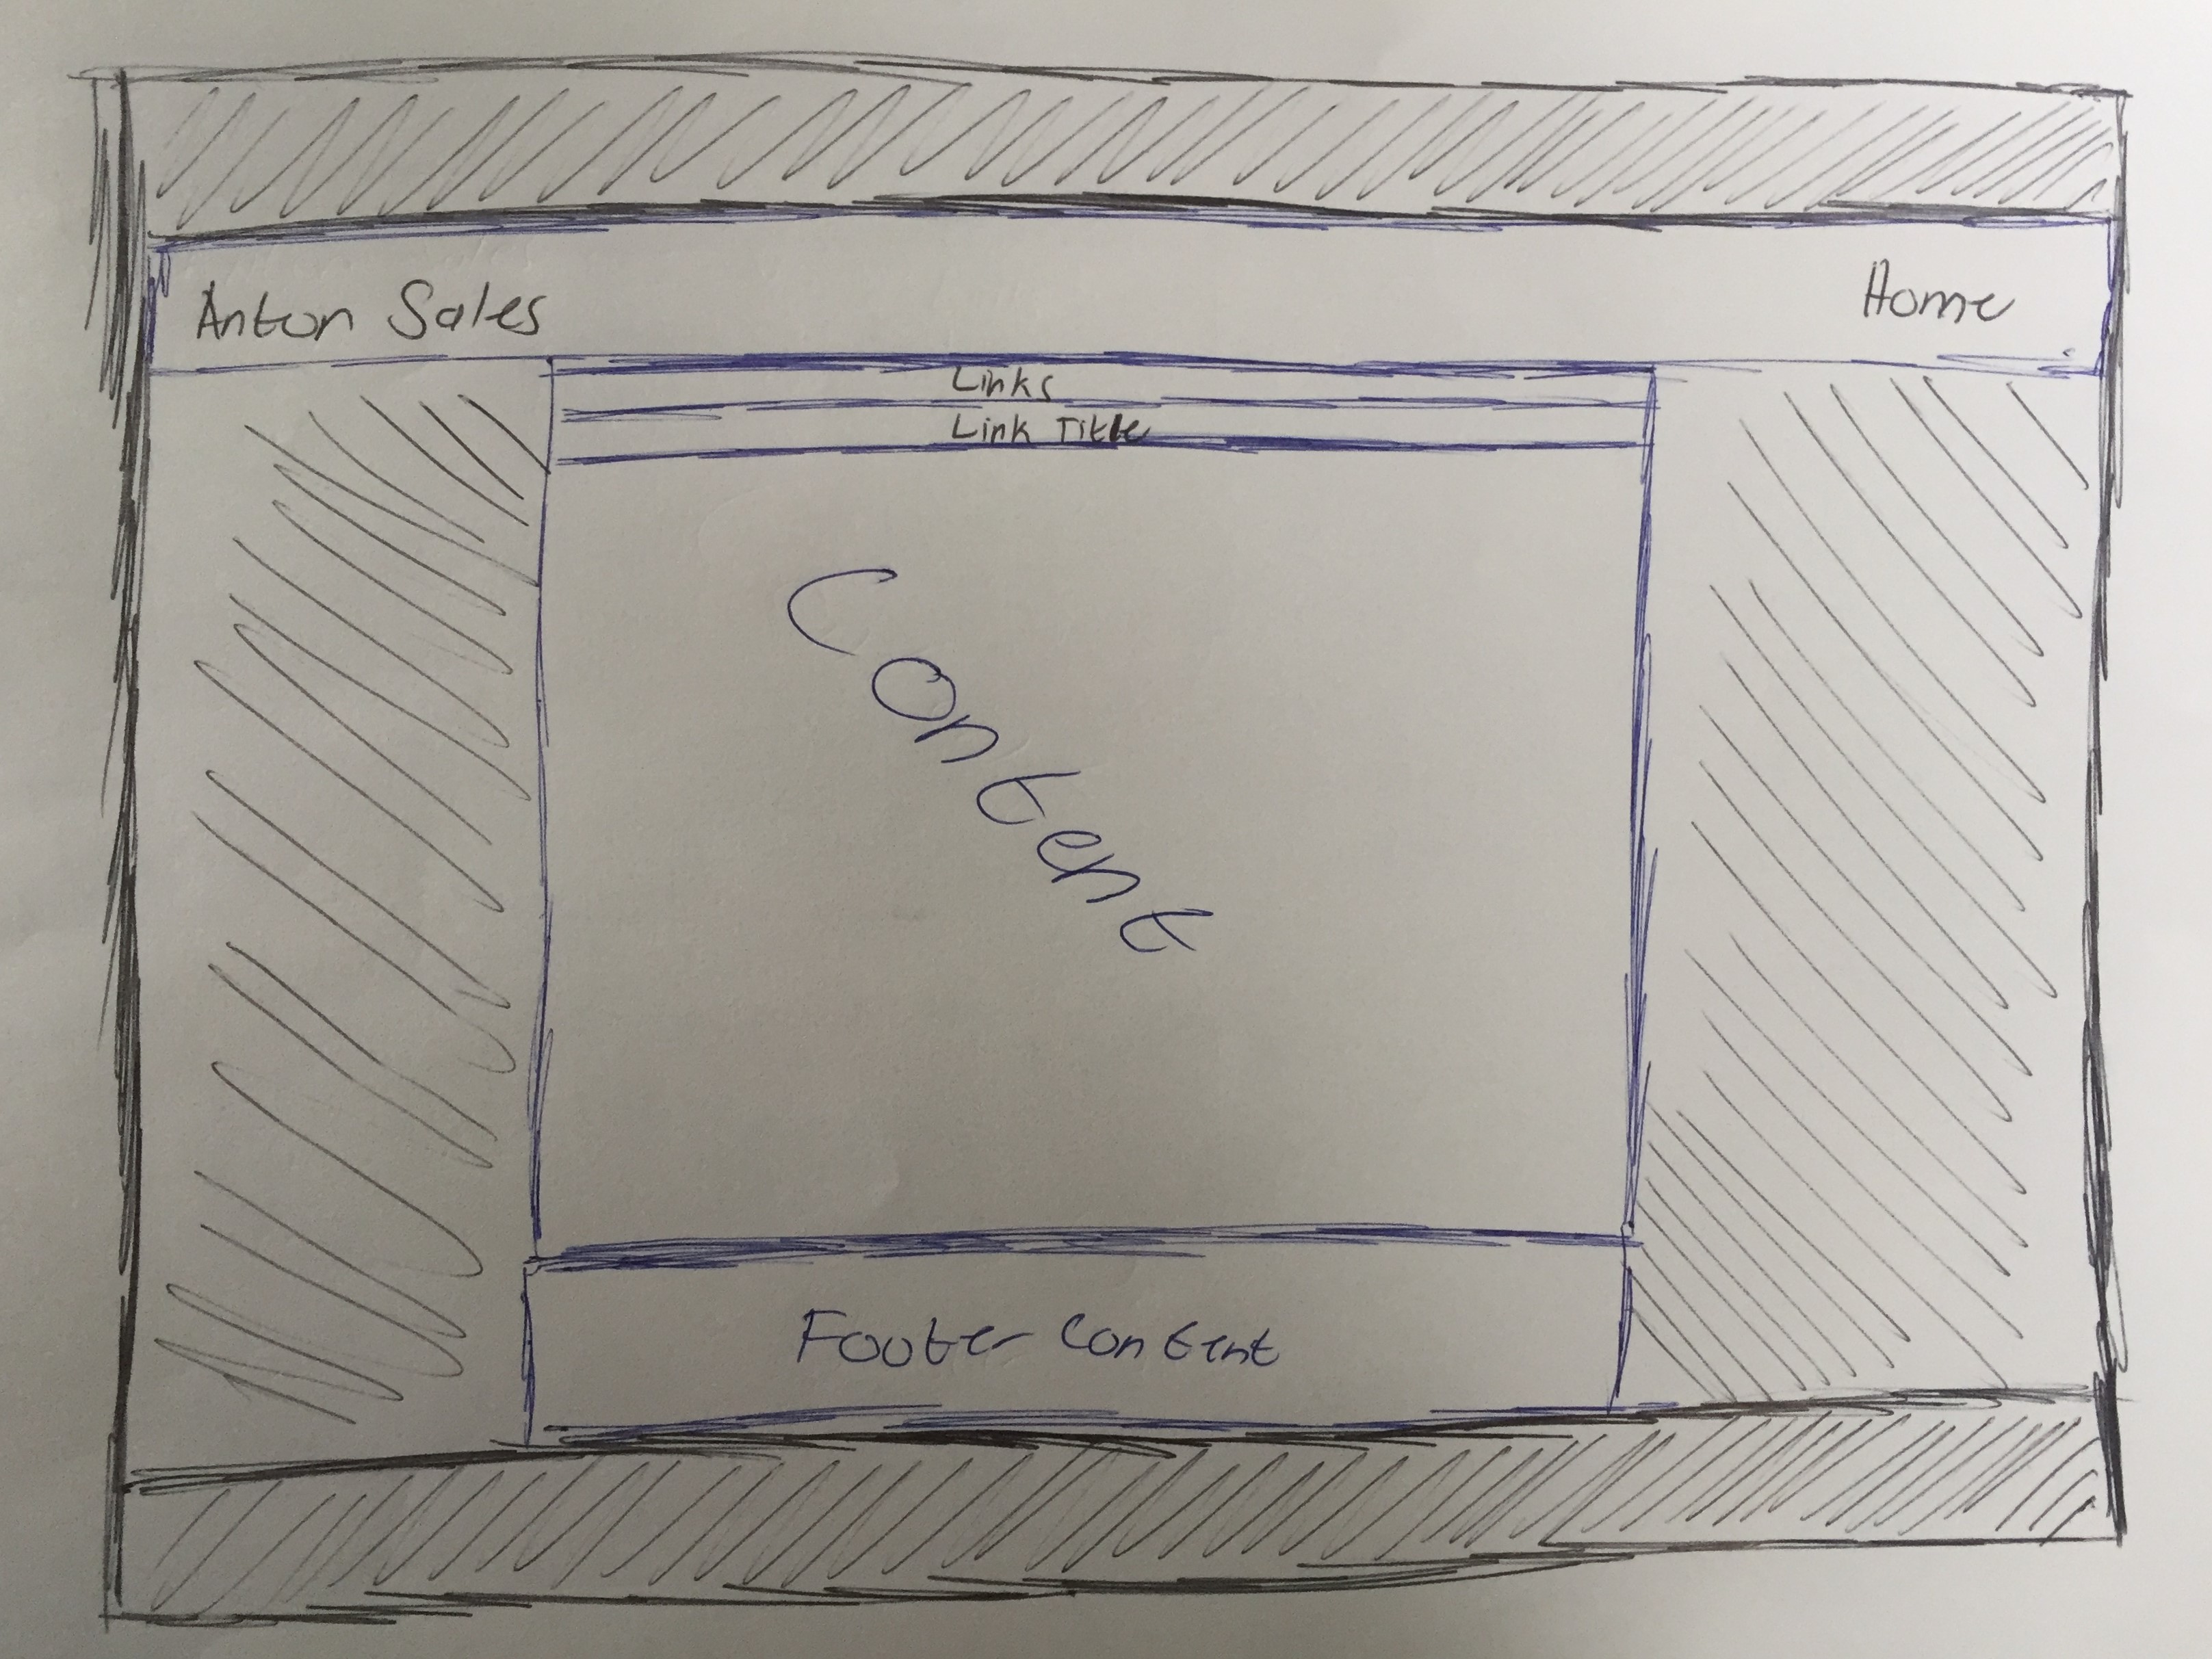 Anton Sales
Home
Links
Link Title
Content
Footer Content